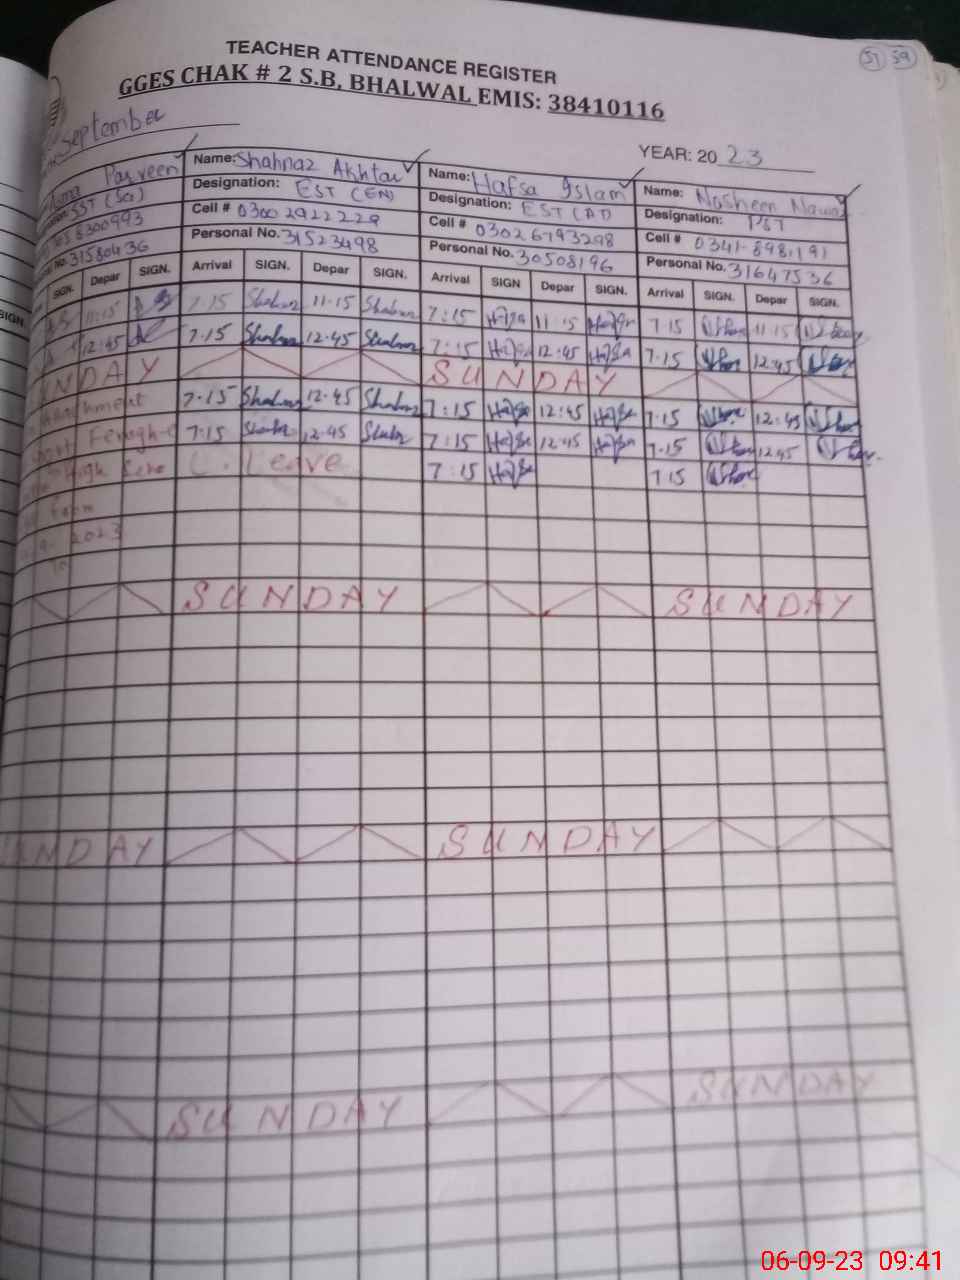 57 59
TEACHER ATTENDANCE REGISTER
GGES CHAK # 2 S.B, BHALWAL EMIS: 38410116
September
YEAR: 20 23
Parveen Name: Shahnaz Akhtar Name: Hafsa Islam Name: Nosheen Nawaz
SST (Sci) Designation: EST (EN) Designation: EST (AT) Designation: PST
6300993 Cell # 0300 2922229 Cell # 03026793298 Cell # 0341-8981191
No. 31580436 Personal No. 31523498 Personal No. 30508196 Personal No. 31647536
SIGN. SIGN. Depar SIGN. Arrival SIGN. Depar SIGN. Arrival SIGN Depar SIGN. Arrival SIGN. Depar SIGN.
11:15 7.15 Shahnaz 11-15 Shahnaz 7:15 Hafsa 11:15 Hafsa 7.15 11:15
12:45 7.15 Shahnaz 12:45 Shahnaz 7:15 Hafsa 12:45 Hafsa 7.15 12:45
UNDAY SUNDAY
7.15 Shahnaz 12.45 Shahnaz 7:15 Hafsa 12:45 Hafsa 7.15 12:45
7:15 Shahnaz 12.45 Shahnaz 7:15 Hafsa 12:45 Hafsa 7.15 12:45
High C. Leave 7:15 Hafsa 7.15
2023
to
SUNDAY SUNDAY
UNDAY SUNDAY
SUNDAY SUNDAY
06-09-23 09:41